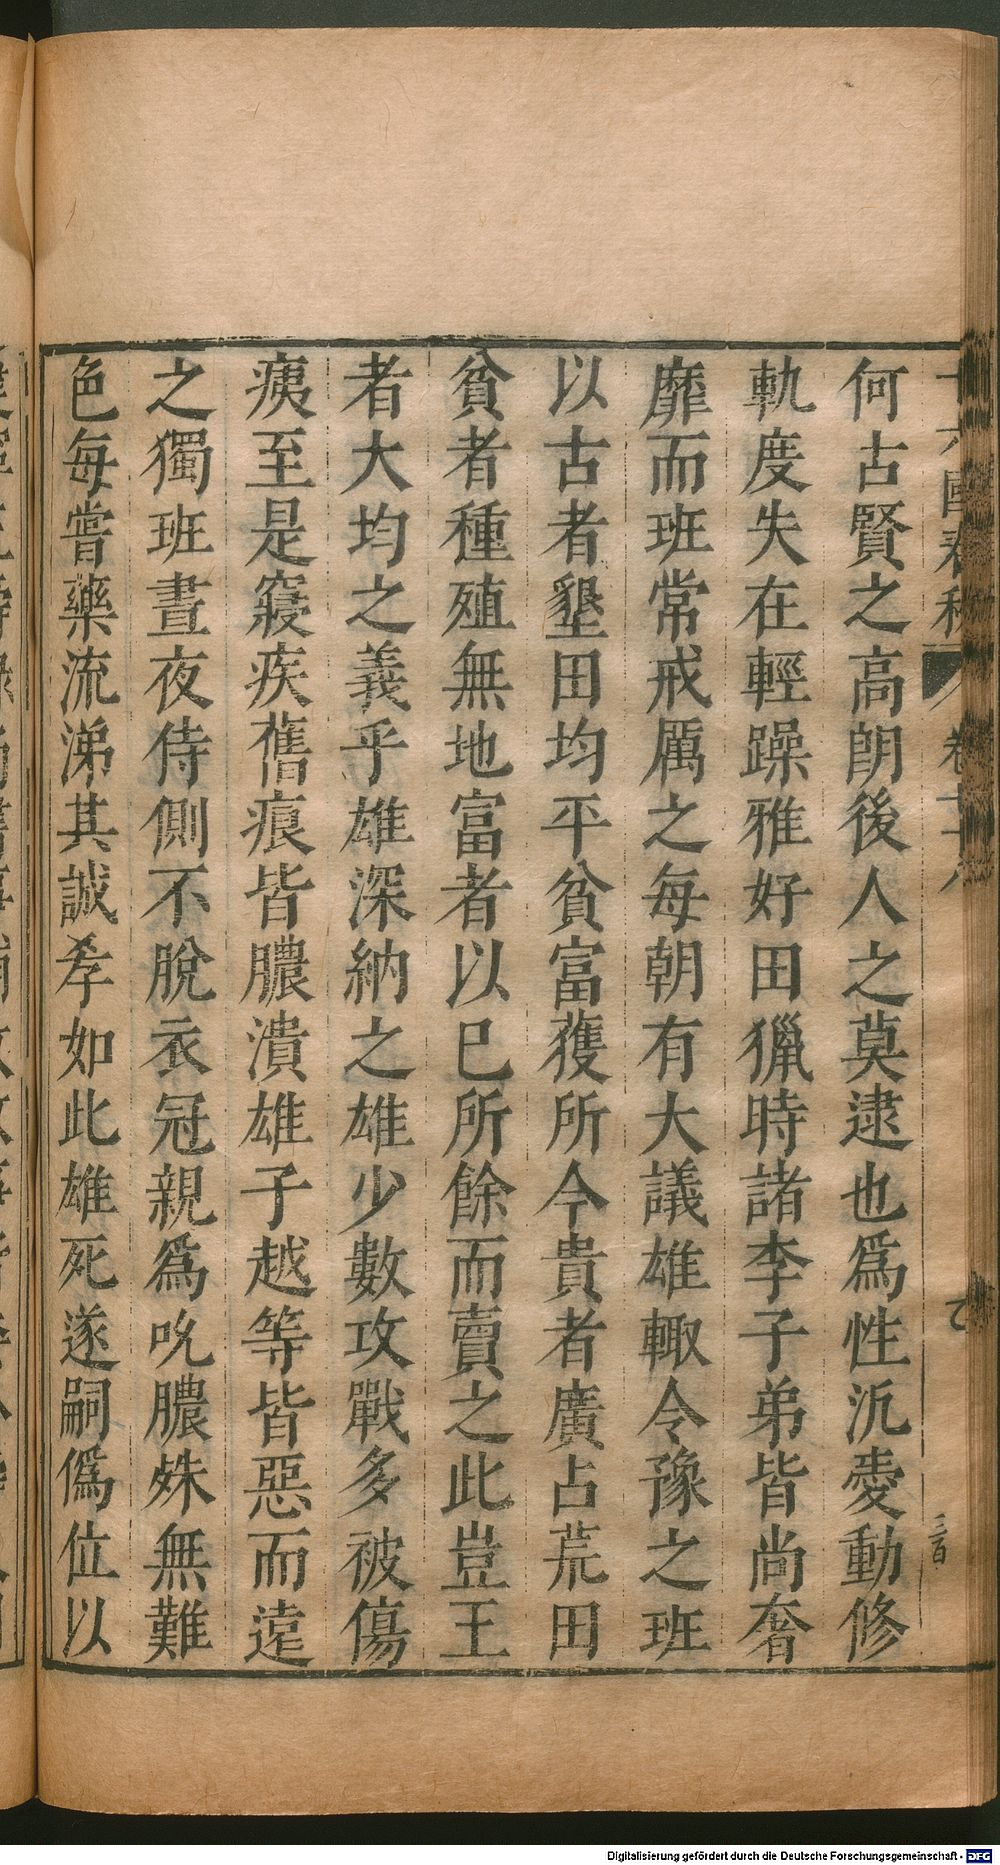 十六國春秋 卷七十八 七
三百
何古賢之高朗後人之莫逮也爲性汎愛動修
軌度失在輕躁雅好田獵時諸李子弟皆尚奢
靡而班常戒厲之每朝有大議雄輙令豫之班
以古者墾田均平貧富獲所今貴者廣占荒田
貧者種殖無地富者以巳所餘而賣之此豈王
者大均之義乎雄深納之雄少數攻戰多被傷
痍至是寢疾舊痕皆膿潰雄子越等皆惡而遠
之獨班晝夜侍側不脫衣冠親爲吮膿殊無難
色每嘗藥流涕其誠孝如此雄死遂嗣僞位以
Digitalisierung gefördert durch die Deutsche Forschungsgemeinschaft - DFG